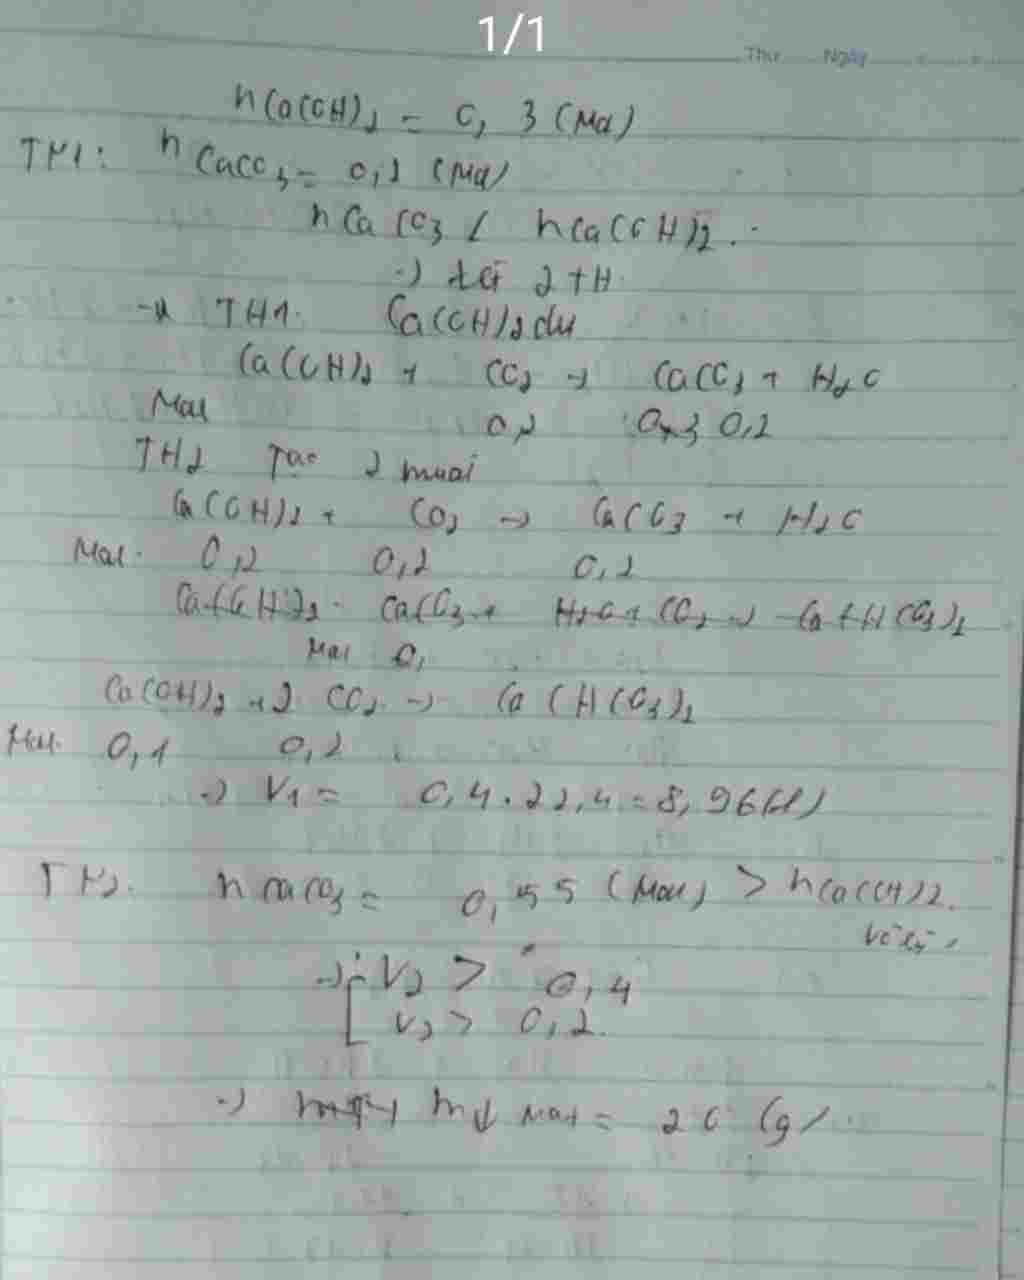 1/1
Thứ Ngày
nCa(OH)2 = 0,3 (Mol)
TH1: nCaCO3 = 0,2 (Mol)
nCaCO3 < nCa(OH)2.
=) xét 2 TH
TH1. Ca(OH)2 dư
Ca(OH)2 + CO2 -> CaCO3 + H2O
Mol 0,2 0,2
TH2 Tạo 2 muối
Ca(OH)2 + CO2 -> CaCO3 + H2O
Mol. 0,2 0,2 0,2
CaCO3 + H2O + CO2 -> Ca(HCO3)2
Mol 0,
Ca(OH)2 + 2 CO2 -> Ca(HCO3)2
Mol. 0,1 0,2
=) V1 = 0,4.22,4 = 8,96(l)
TH2. nCaCO3 = 0,55 (Mol) > nCa(OH)2.
Vô lý
=) [ V2 > 0,4
V2 > 0,2.
=) m↓ Max = 20 (g)